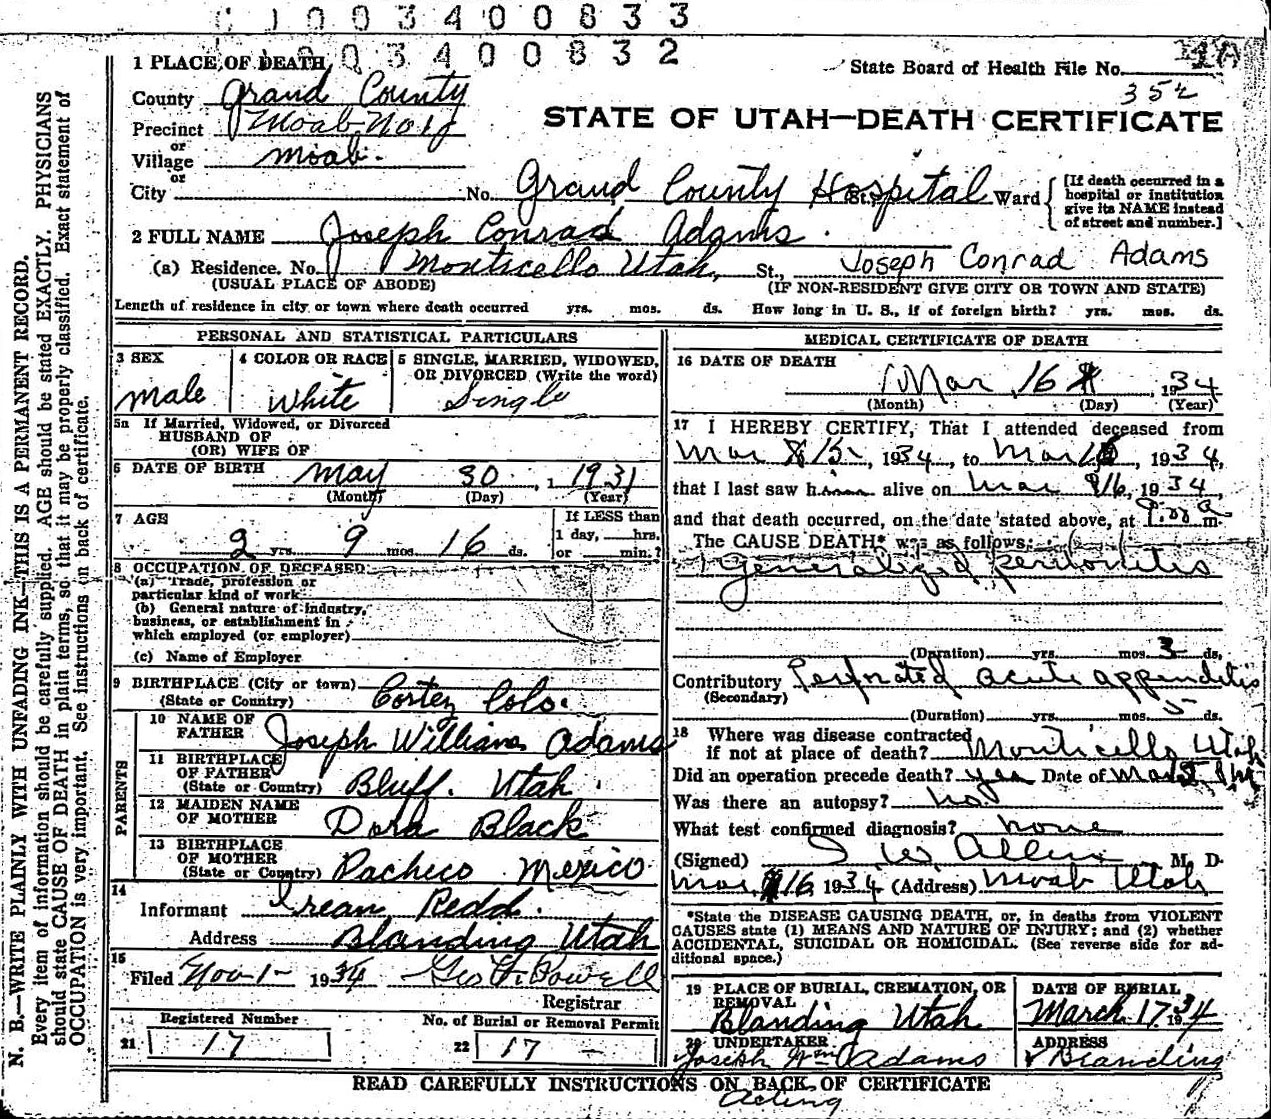 0 0 3 4 0 0 8 3 3
0 3 4 0 0 8 3 2
1 PLACE OF DEATH
State Board of Health File No.
352
County Grand County
STATE OF UTAH—DEATH CERTIFICATE
Precinct Moab No 1
or
Village Moab.
or
City No. Grand County Hospital St., Ward
[If death occurred in a
hospital or institution
give its NAME instead
of street and number.]
2 FULL NAME Joseph Conrad Adams.
(a) Residence. No. Monticello Utah, St., Joseph Conrad Adams
(USUAL PLACE OF ABODE) (IF NON-RESIDENT GIVE CITY OR TOWN AND STATE)
Length of residence in city or town where death occurred yrs. mos. ds. How long in U. S., if of foreign birth? yrs. mos. ds.
PERSONAL AND STATISTICAL PARTICULARS
3 SEX
male
4 COLOR OR RACE
White
5 SINGLE, MARRIED, WIDOWED,
OR DIVORCED (Write the word)
Single
5a If Married, Widowed, or Divorced
HUSBAND OF
(OR) WIFE OF
6 DATE OF BIRTH May 30, 1931
(Month) (Day) (Year)
7 AGE
2 yrs. 9 mos. 16 ds.
If LESS than
1 day, hrs.
or min.?
8 OCCUPATION OF DECEASED
(a) Trade, profession or
particular kind of work
(b) General nature of industry,
business, or establishment in
which employed (or employer)
(c) Name of Employer
9 BIRTHPLACE (City or town)
(State or Country) Cortez Colo.
PARENTS
10 NAME OF
FATHER Joseph Williams Adams
11 BIRTHPLACE
OF FATHER
(State or Country) Bluff. Utah.
12 MAIDEN NAME
OF MOTHER Dora Black
13 BIRTHPLACE
OF MOTHER
(State or Country) Pacheco Mexico
14
Informant Irean Redd.
Address Blanding Utah
15
Filed Nov-1- 1934 Geo Powell
Registrar
Registered Number No. of Burial or Removal Permit
21 17 22 17 -
MEDICAL CERTIFICATE OF DEATH
16 DATE OF DEATH
Mar 16, 1934
(Month) (Day) (Year)
17 I HEREBY CERTIFY, That I attended deceased from
Mar 15, 1934, to Mar 16, 1934,
that I last saw him alive on Mar 16, 1934,
and that death occurred, on the date stated above, at m.
The CAUSE DEATH* was as follows:
Generalized peritonitis
(Duration) yrs. mos. 3 ds.
Contributory Perforated acute appendicitis
(Secondary)
(Duration) yrs. mos. 5 ds.
18 Where was disease contracted
if not at place of death? Monticello Utah
Did an operation precede death? yes Date of Mar 15
Was there an autopsy? no.
What test confirmed diagnosis? none
(Signed) I W Allen M. D.
Mar 16 1934 (Address) Moab Utah
*State the DISEASE CAUSING DEATH, or, in deaths from VIOLENT
CAUSES state (1) MEANS AND NATURE OF INJURY; and (2) whether
ACCIDENTAL, SUICIDAL OR HOMICIDAL. (See reverse side for ad-
ditional space.)
19 PLACE OF BURIAL, CREMATION, OR
REMOVAL
Blanding Utah
DATE OF BURIAL
March 17, 1934
20 UNDERTAKER
Joseph Wm Adams
ADDRESS
Blanding
READ CAREFULLY INSTRUCTIONS ON BACK OF CERTIFICATE
Acting
N. B.—WRITE PLAINLY WITH UNFADING INK—THIS IS A PERMANENT RECORD.
Every item of information should be carefully supplied. AGE should be stated EXACTLY. PHYSICIANS
should state CAUSE OF DEATH in plain terms, so that it may be properly classified. Exact statement of
OCCUPATION is very important. See instructions on back of certificate.